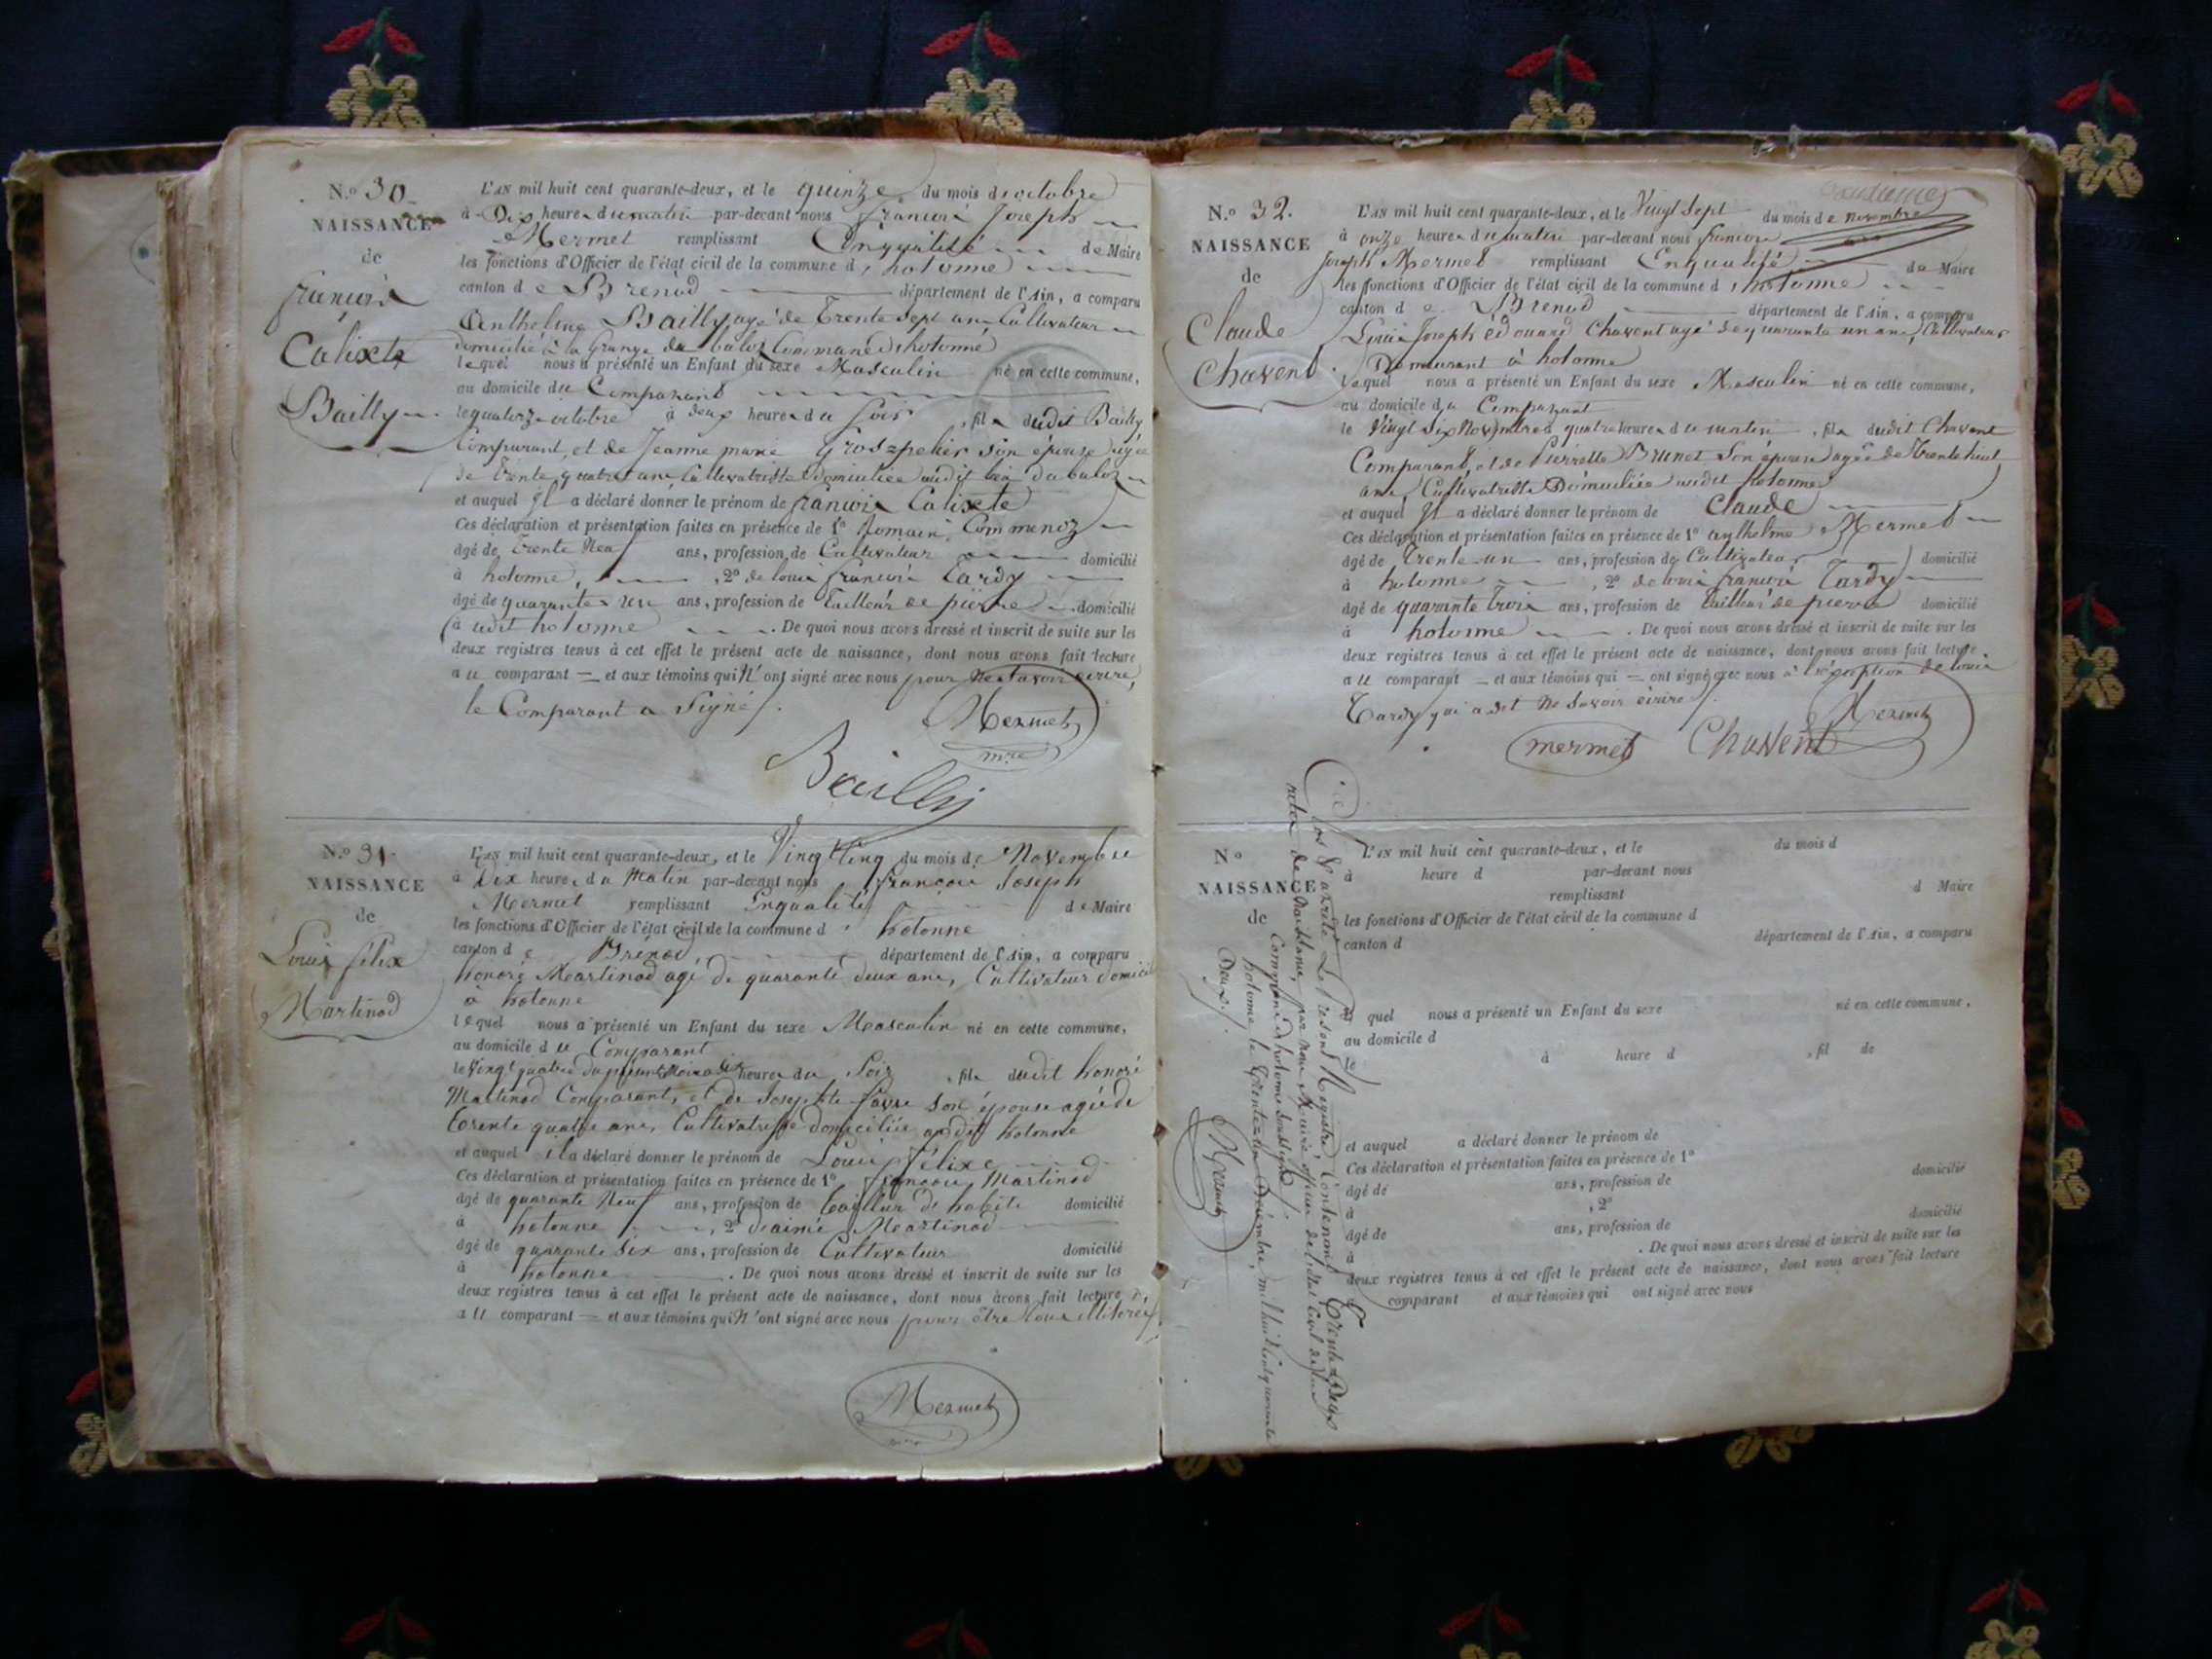 N.o 30
NAISSANCE
de
françois
Calixte
Bailly
L'AN mil huit cent quarante-deux, et le quinze du mois d'octobre
à Dix heures du matin par-devant nous françois Joseph
Mermet remplissant Enqualité de Maire
les fonctions d'Officier de l'état civil de la commune d'hotonne
canton de Brénod département de l'Ain, a comparu
Anthelme Bailly agé de Trente Sept ans Cultivateur
domicilié à la Grange du baloz Commune d'hotonne
lequel nous a présenté un Enfant du sexe Masculin né en cette commune,
au domicile du Comparant
le quatorze octobre à deux heures du soir, fils dudit Bailly
Comparant, et de Jeanne marie Grospelier son épouse agée
de Trente quatre ans Cultivatrice domiciliée audit lieu du baloz
et auquel Il a déclaré donner le prénom de françois Calixte
Ces déclaration et présentation faites en présence de 1o Romain Commenoz
âgé de Trente Neuf ans, profession de Cultivateur domicilié
à hotonne, 2o de louis françois Tardy
âgé de quarante un ans, profession de Tailleur de pierre domicilié
à udit hotonne. De quoi nous avons dressé et inscrit de suite sur les
deux registres tenus à cet effet le présent acte de naissance, dont nous avons fait lecture
au comparant et aux témoins qui N'ont signé avec nous pour Ne savoir écrire,
le Comparant a Signé
Mermet
mre
Bailly
N.o 31
NAISSANCE
de
Louis félix
Martinod
L'AN mil huit cent quarante-deux, et le Vingt Cinq du mois de Novembre
à Dix heures du Matin par-devant nous françois Joseph
Mermet remplissant Enqualité de Maire
les fonctions d'Officier de l'état civil de la commune d'hotonne
canton de Brénod département de l'Ain, a comparu
honoré Martinod agé de quarante deux ans, Cultivateur domicil
à hotonne
lequel nous a présenté un Enfant du sexe Masculin né en cette commune,
au domicile du Comparant
le Vingt quatre du présent Mois à heures du Soir, fils dudit honoré
Martinod Comparant, et de Josephte favre son épouse agée de
Trente quatre ans, Cultivatrice domiciliée audit hotonne
et auquel il a déclaré donner le prénom de Louis félixe
Ces déclaration et présentation faites en présence de 1o françois Martinod
âgé de quarante Neuf ans, profession de Tailleur d'habits domicilié
à hotonne, 2o d'aimé Martinod
âgé de quarante Six ans, profession de Cultivateur domicilié
à hotonne. De quoi nous avons dressé et inscrit de suite sur les
deux registres tenus à cet effet le présent acte de naissance, dont nous avons fait lecture
au comparant et aux témoins qui N'ont signé avec nous pour être tous illiterés
Mermet
mre
N.o 32.
NAISSANCE
de
Claude
Chavent
L'AN mil huit cent quarante-deux, et le Vingt Sept du mois de novembre
à onze heures du matin par-devant nous françois
Joseph Mermet remplissant Enqualité de Maire
les fonctions d'Officier de l'état civil de la commune d'hotonne
canton de Brénod département de l'Ain, a comparu
Louis Joseph edouard Chavent agé de quarante un ans, Cultivateur
Demeurant à hotonne
lequel nous a présenté un Enfant du sexe Masculin né en cette commune,
au domicile du Comparant
le Vingt Six Novembre à quatre heures du matin, fils dudit Chavent
Comparant, et de Pierrette Brunet Son épouse agée de Trente huit
ans, Cultivatrice Domiciliée audit hotonne
et auquel Il a déclaré donner le prénom de Claude
Ces déclaration et présentation faites en présence de 1o anthelme Mermet
âgé de Trente un ans, profession de Cultivateur domicilié
à hotonne, 2o de louis françois Tardy
âgé de quarante Trois ans, profession de Tailleur de pierre domicilié
à hotonne. De quoi nous avons dressé et inscrit de suite sur les
deux registres tenus à cet effet le présent acte de naissance, dont nous avons fait lecture
au comparant et aux témoins qui ont signé avec nous à l'éxception de louis
Tardy qui a dit Ne Savoir écrire
mermet Chavent Mermet
N.o
NAISSANCE
de
L'AN mil huit cent quarante-deux, et le du mois d
à heure d par-devant nous
remplissant d Maire
les fonctions d'Officier de l'état civil de la commune d
canton d département de l'Ain, a comparu
quel nous a présenté un Enfant du sexe né en cette commune,
au domicile d
le à heure d, fil de
et auquel a déclaré donner le prénom de
Ces déclaration et présentation faites en présence de 1o
âgé de ans, profession de domicilié
à, 2o
âgé de ans, profession de domicilié
à. De quoi nous avons dressé et inscrit de suite sur les
deux registres tenus à cet effet le présent acte de naissance, dont nous avons fait lecture
comparant et aux témoins qui ont signé avec nous
Clos & arrêté Le Present Registre Contenant Trente Deux
actes de Naissance, par nous Maire officier de l'état Civil de la
Commune d'hotonne soussigné
hotonne le Trente un Décembre, mil huit Cent quarante
Deux
Mermet